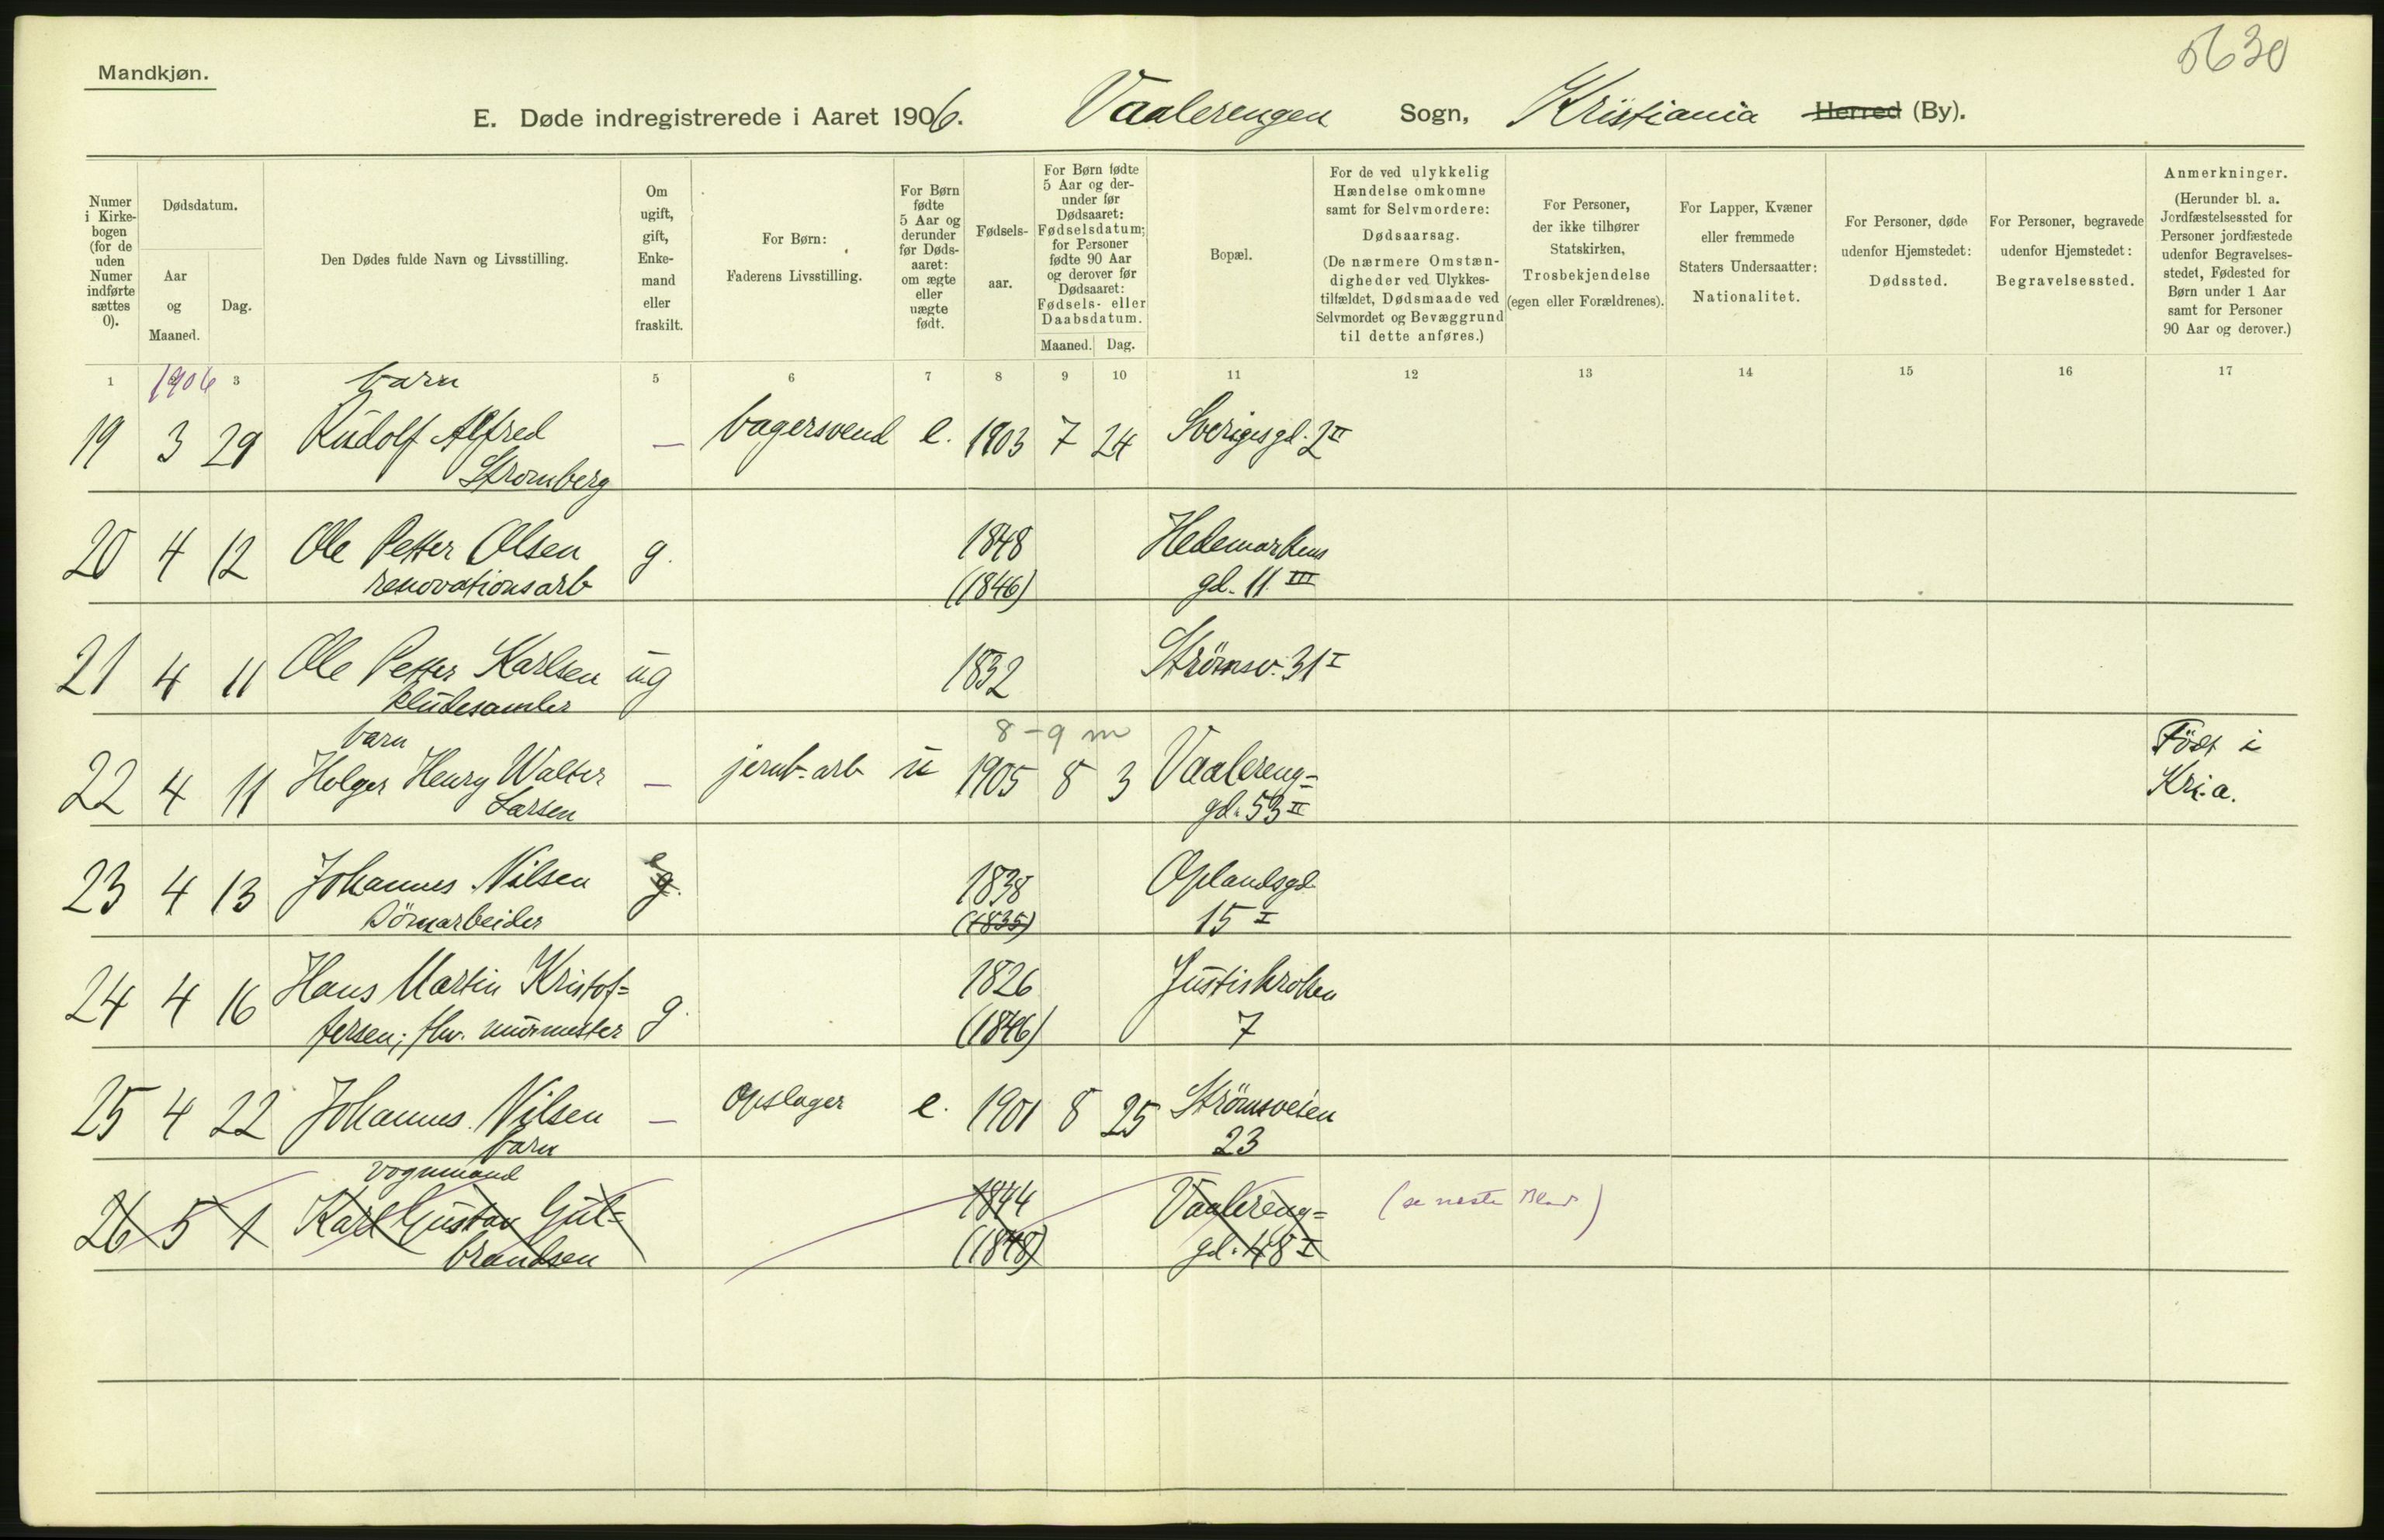 5630
Mandkjøn.
E. Døde indregistrerede i Aaret 1906. Vaalerengen Sogn, Kristiania Herred (By).
Numer i Kirkebogen (for de uden Numer indførte sættes 0).
Dødsdatum.
Aar og Maaned.
Dag.
Den Dødes fulde Navn og Livsstilling.
Om ugift, gift, Enkemand eller fraskilt.
For Børn: Faderens Livsstilling.
For Børn fødte 5 Aar og derunder før Dødsaaret: om ægte eller uægte født.
Fødselsaar.
For Børn fødte 5 Aar og derunder før Dødsaaret: Fødselsdatum; for Personer fødte 90 Aar og derover før Dødsaaret: Fødsels- eller Daabsdatum.
Maaned. Dag.
Bopæl.
For de ved ulykkelig Hændelse omkomne samt for Selvmordere: Dødsaarsag. (De nærmere Omstændigheder ved Ulykkestilfældet, Dødsmaade ved Selvmordet og Bevæggrund til dette anføres.)
For Personer, der ikke tilhører Statskirken, Trosbekjendelse (egen eller Forældrenes).
For Lapper, Kvæner eller fremmede Staters Undersaatter: Nationalitet.
For Personer, døde udenfor Hjemstedet: Dødssted.
For Personer, begravede udenfor Hjemstedet: Begravelsessted.
Anmerkninger. (Herunder bl. a. Jordfæstelsessted for Personer jordfæstede udenfor Begravelsesstedet, Fødested for Børn under 1 Aar samt for Personer 90 Aar og derover.)
1 1906 3 5 6 7 8 9 10 11 12 13 14 15 16 17
barn
19 3 29 Rudolf Alfred — bagersvend e. 1903 7 24 Sverigesgd. 2 II
Stromberg
20 4 12 Ole Petter Olsen g. 1848 Hedemarkens
renovationsarb (1846) gd. 11 III
21 4 11 Ole Petter Karlsen ug 1832 Strömsv. 31 I
kludesamler
barn 8-9 m Födt i
22 4 11 Holger Henry Walter — jernb. arb u 1905 8 3 Vaalereng= Kr.a.
Larsen gd. 53 II
23 4 13 Johannes Nilsen e g. 1838 Oplandsgd
Dömarbeider (1835) 15 I
24 4 16 Hans Martin Kristof= g. 1826 Justiskroken
fersen; fhv. murmester (1846) 7
25 4 22 Johannes Nilsen — Opslager e. 1901 8 25 Strömsveien
barn 23
vognmand
26 5 1 Karl Gustav Gul= 1844 Vaalereng= (se neste Blad)
brandsen (1848) gd. 48 I